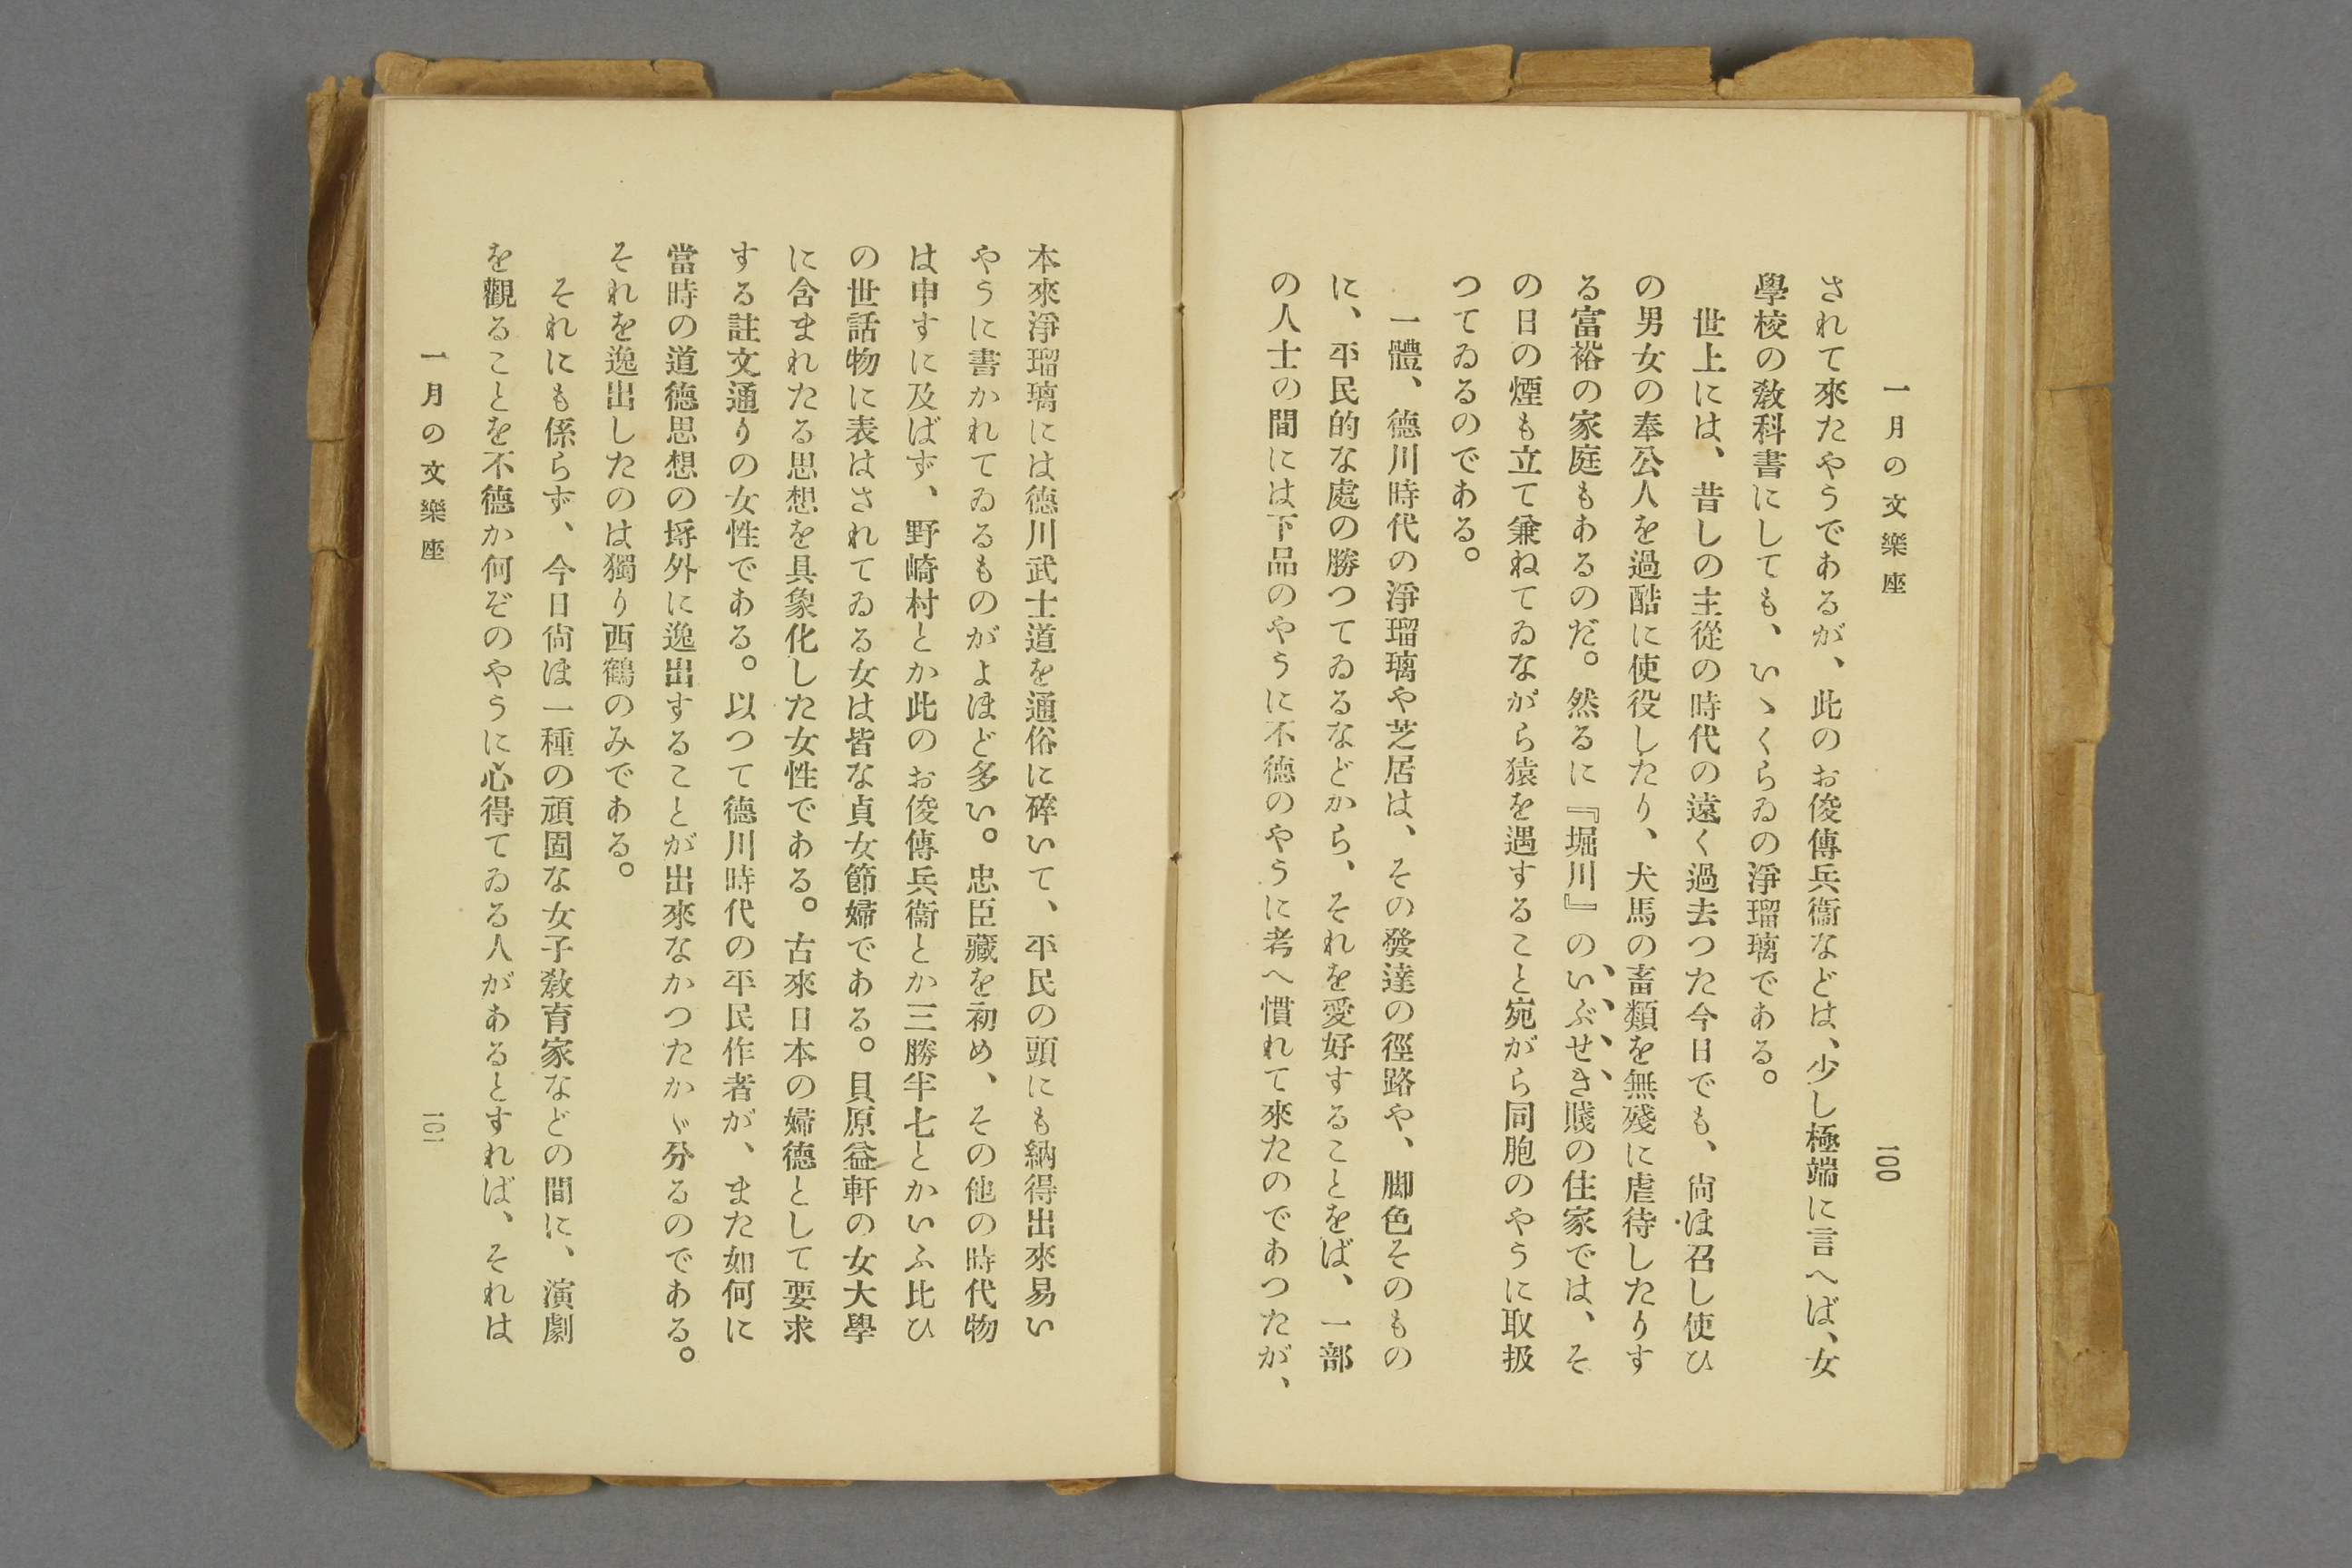 一月の文樂座
一〇〇
されて來たやうであるが、此のお俊傳兵衞などは、少し極端に言へば、女
學校の敎科書にしても、いゝくらゐの淨瑠璃である。
世上には、昔しの主從の時代の遠く過去つた今日でも、尙ほ召し使ひ
の男女の奉公人を過酷に使役したり、犬馬の畜類を無殘に虐待したりす
る富裕の家庭もあるのだ。然るに『堀川』のいぶせき賤の住家では、そ
の日の煙も立て兼ねてゐながら猿を遇すること宛がら同胞のやうに取扱
つてゐるのである。
一體、德川時代の淨瑠璃や芝居は、その發達の徑路や、脚色そのもの
に、平民的な處の勝つてゐるなどから、それを愛好することをば、一部
の人士の間には下品のやうに不德のやうに考へ慣れて來たのであつたが、
本來淨瑠璃には德川武士道を通俗に碎いて、平民の頭にも納得出來易い
やうに書かれてゐるものがよほど多い。忠臣藏を初め、その他の時代物
は申すに及ばず、野崎村とか此のお俊傳兵衞とか三勝半七とかいふ比ひ
の世話物に表はされてゐる女は皆な貞女節婦である。貝原益軒の女大學
に含まれたる思想を具象化した女性である。古來日本の婦德として要求
する註文通りの女性である。以つて德川時代の平民作者が、また如何に
當時の道德思想の埓外に逸出することが出來なかつたかゞ分るのである。
それを逸出したのは獨り西鶴のみである。
それにも係らず、今日尙ほ一種の頑固な女子敎育家などの間に、演劇
を觀ることを不德か何ぞのやうに心得てゐる人があるとすれば、それは
一月の文樂座
一〇一